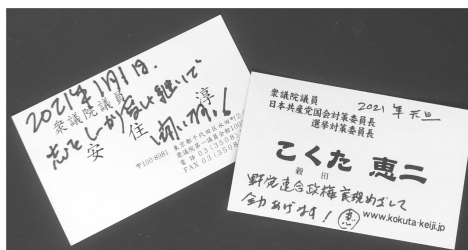 2021年1月1日.
衆議院議員
安住 淳
〒100-8981
東京都千代田区永田町2
衆議院第一議員会館100
電話 03(3508
FAX 03(3508
衆議院議員
日本共産党国会対策委員長
選挙対策委員長
2021年元旦
こくた 恵二
穀田
野党連合政権実現めざして
全力あげます!
恵
www.kokuta-keiji.jp